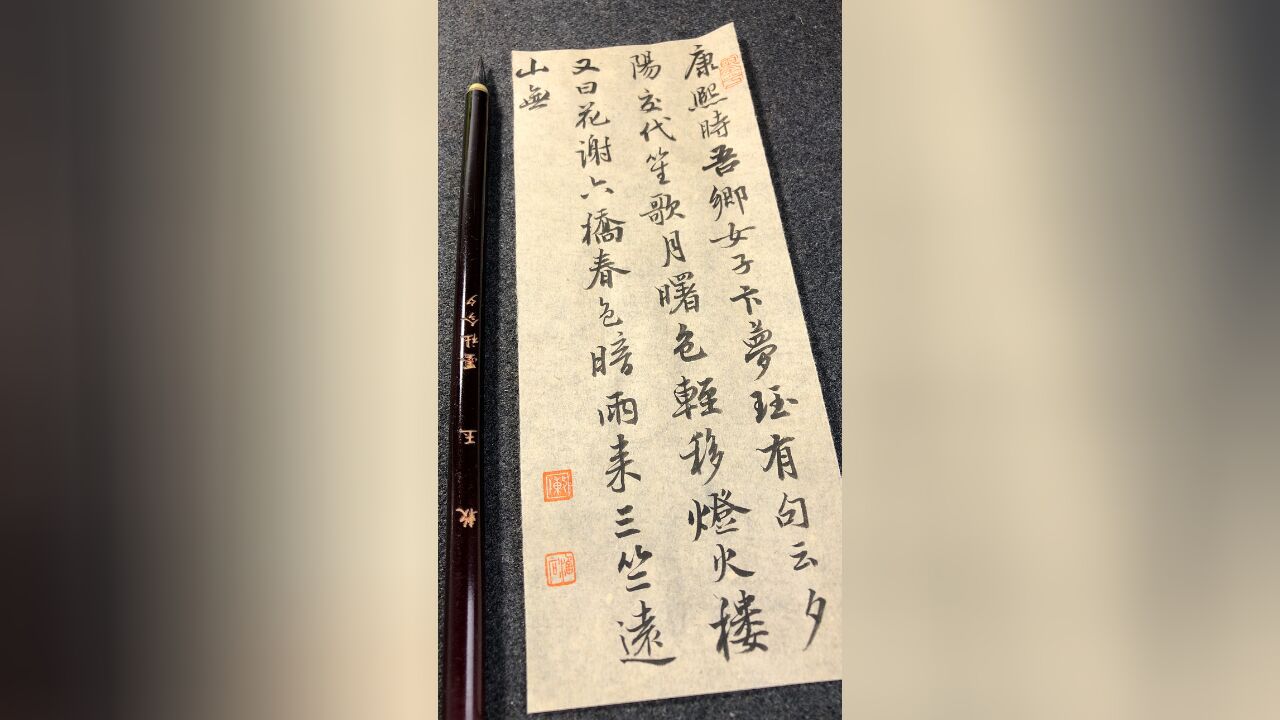 康熙時吾鄉女子卞夢珏有句云夕
陽交代笙歌月曙色輕移燈火樓
又曰花謝六橋春色暗雨来三竺遠
山無